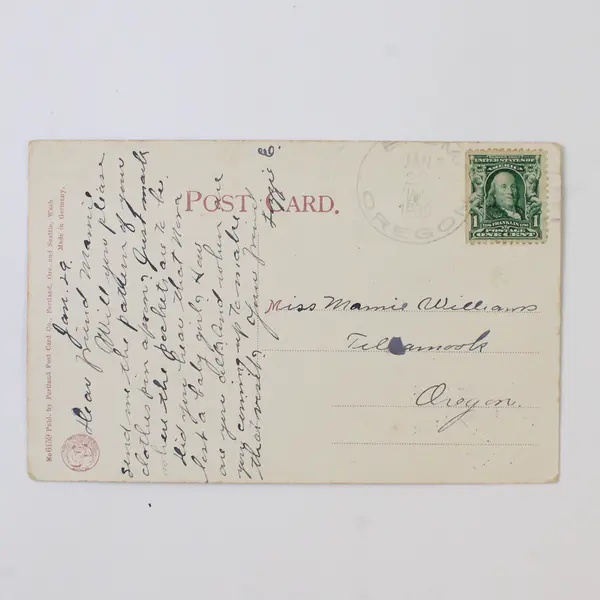 Jan. 29
Dear friend Mamie
Will you please
send me the pattern of your
clothes pin apron? Just mark
where the pockets are to be.
Did you hear that Nora
lost a baby girl? How
are you all and when are
you coming up to make
that visit? Yours Friend
POST CARD.
OREGON
UNITED STATES OF
AMERICA
1 1
FRANKLIN
POSTAGE
ONE CENT
Miss Mamie Williams
Tillamook
Oregon.
Publ. by Portland Post Card Co., Portland, Ore. and Seattle, Wash.
Made in Germany.